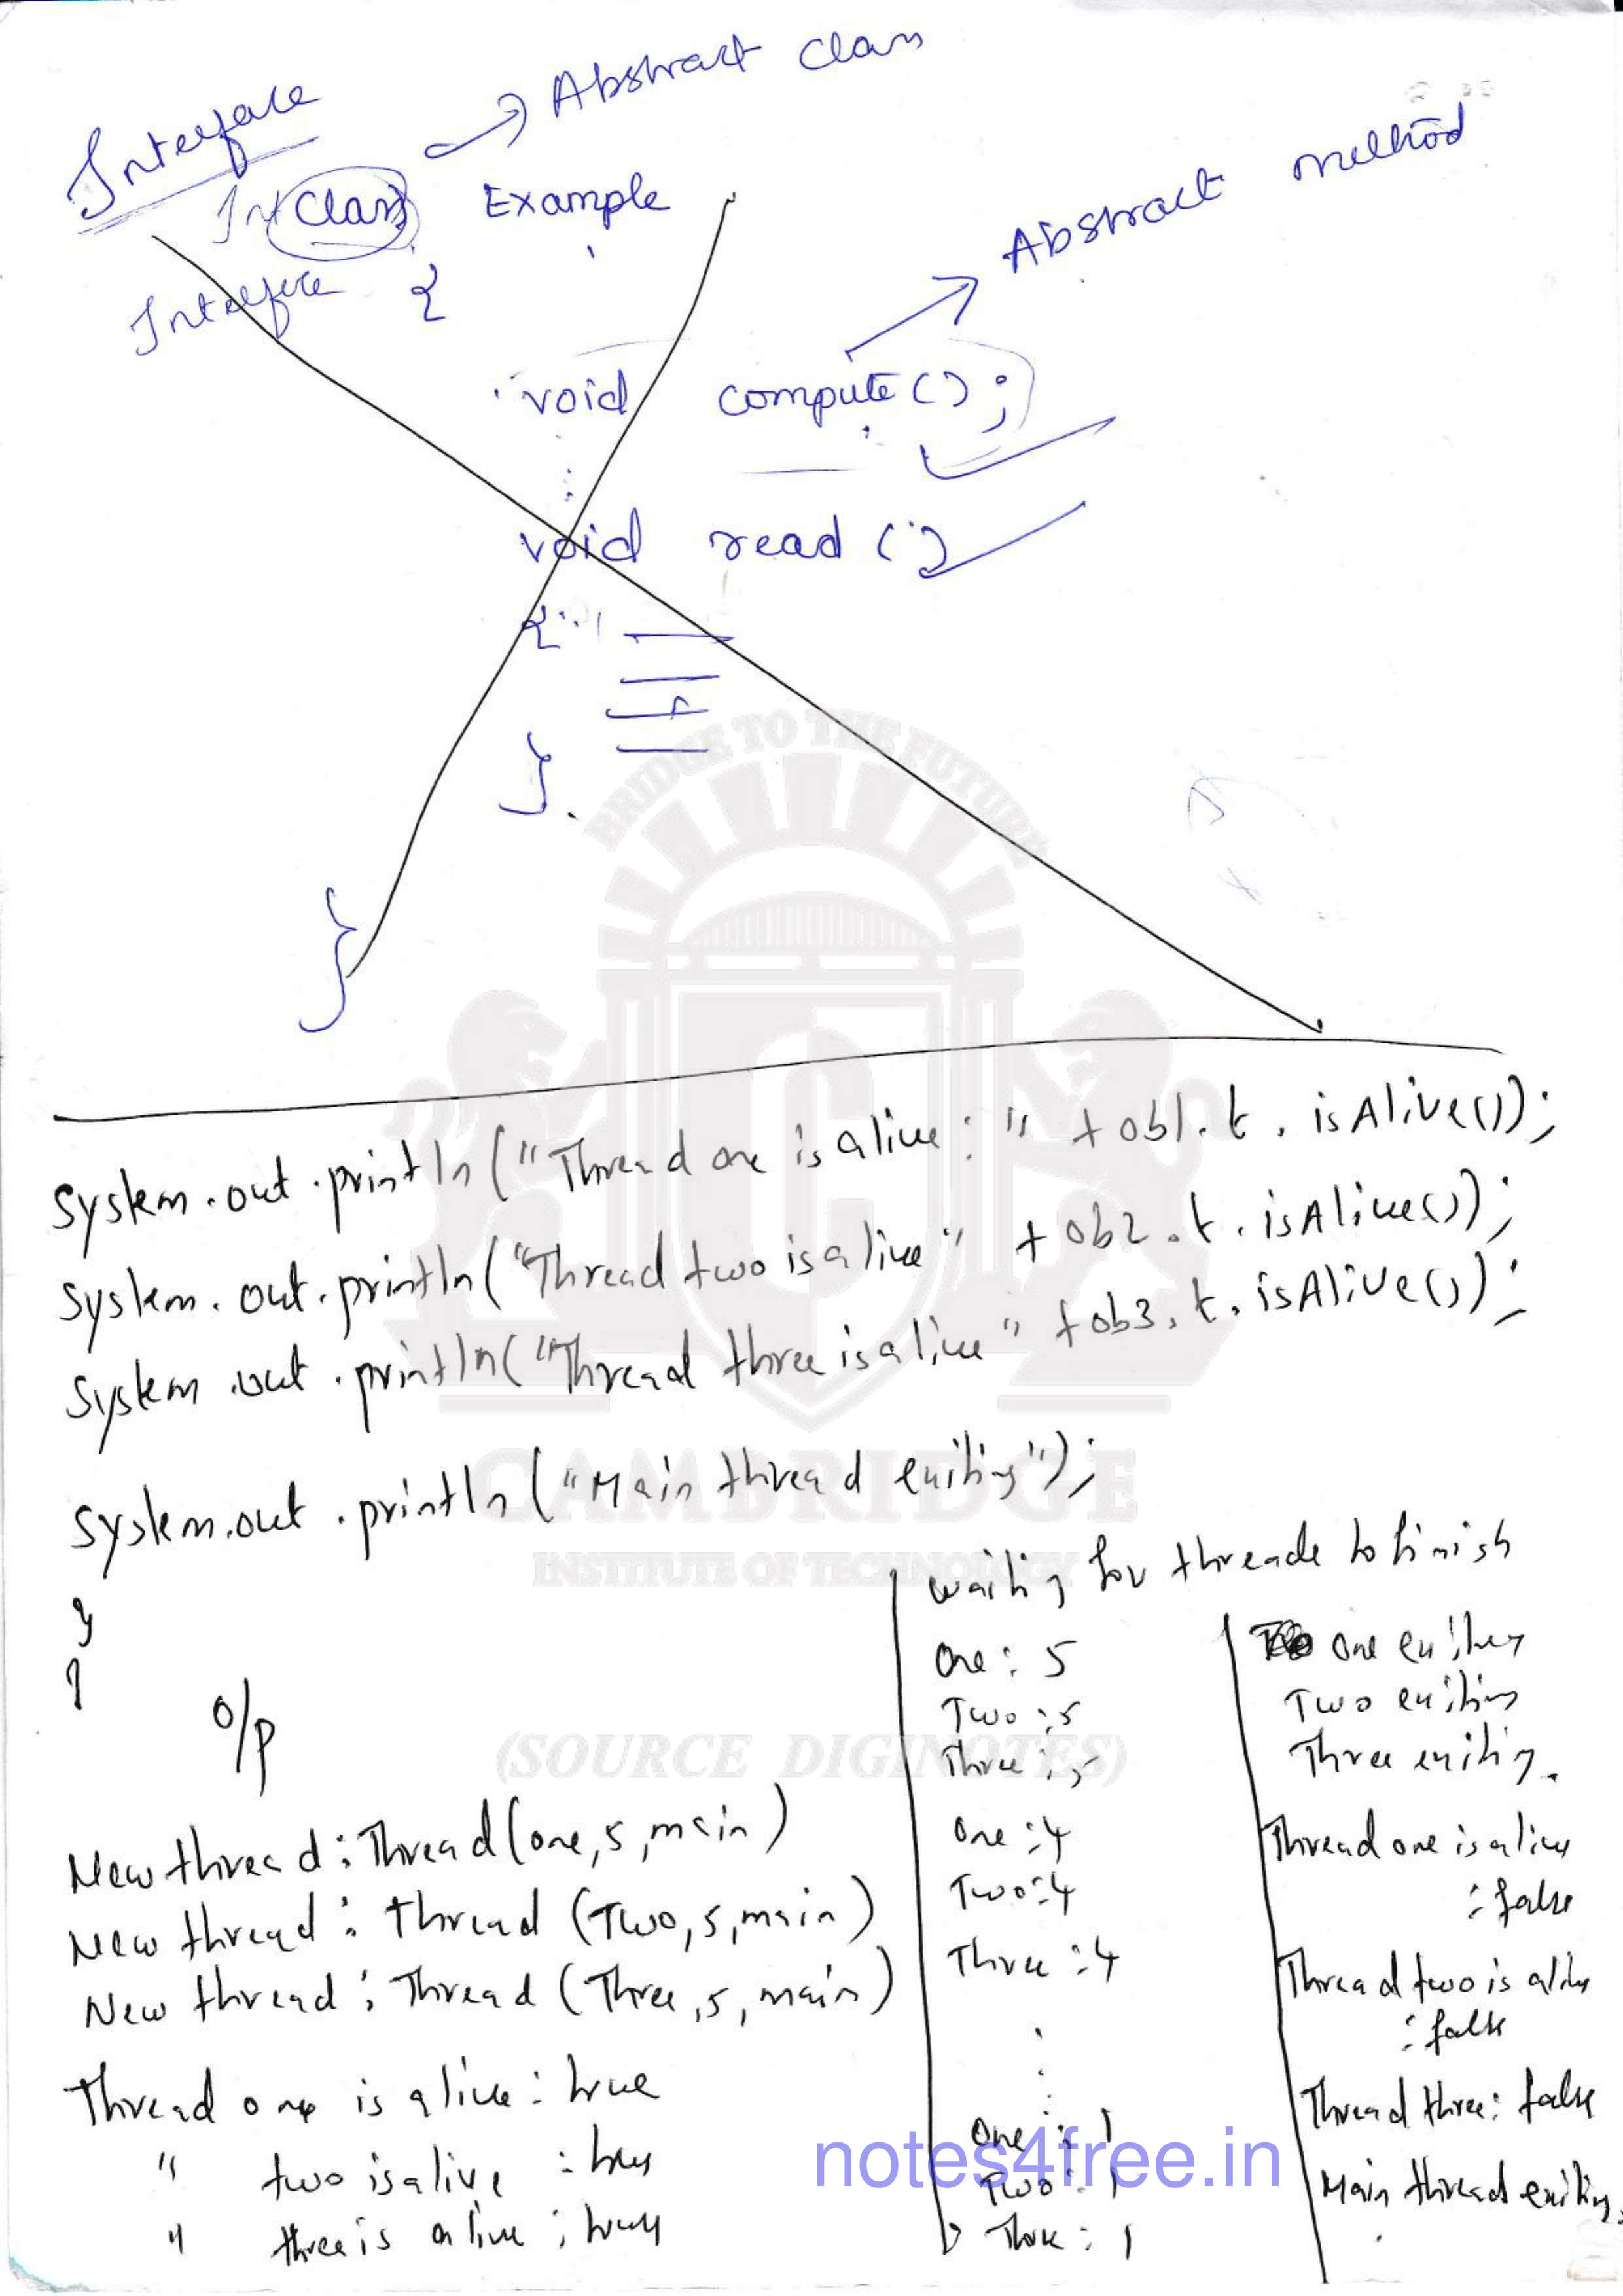 Interface
→ Abstract Class
Int Class Example
Interface {
Abstract method
void compute();
void read()
{
}
}
BRIDGE TO THE FUTURE
System.out.println("Thread one is alive:" + ob1.t.isAlive());
System.out.println("Thread two is alive" + ob2.t.isAlive());
System.out.println("Thread three is alive" + ob3.t.isAlive());
System.out.println("Main thread exiting");
}
}
CAMBRIDGE
INSTITUTE OF TECHNOLOGY
(SOURCE DIGINOTES)
O/p
New thread: Thread(one,5,main)
New thread: Thread (Two,5,main)
New thread: Thread (Three,5,main)
Thread one is alive: true
" two is alive : true
" three is alive : true
waiting for threads to finish
One: 5
Two: 5
Three: 5
One: 4
Two: 4
Three: 4
.
:
One: 1
Two: 1
Three: 1
one exiting
Two exiting
Three exiting.
Thread one is alive
: false
Thread two is alive
: false
Thread three: false
Main thread exiting.
notes4free.in